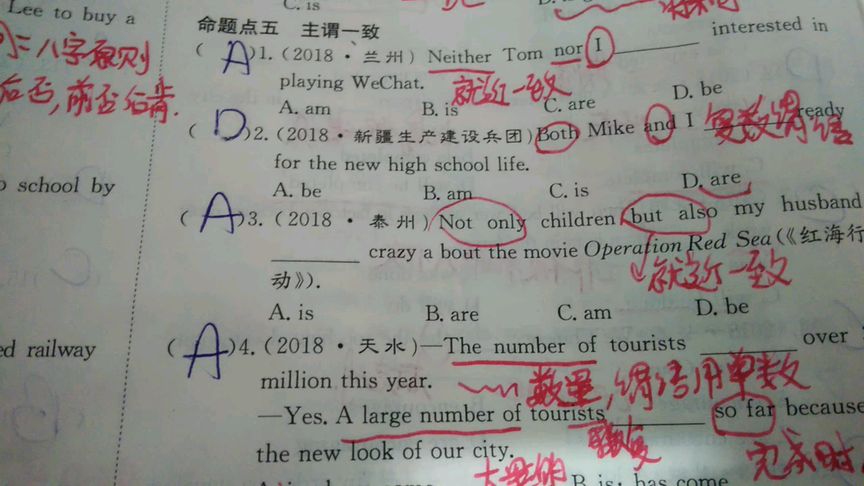 C. is
Lee to buy a
命题点五 主谓一致
=八字原则
( A )1. (2018 · 兰州) Neither Tom nor I ______ interested in
后否,前否后肯.
playing WeChat. 就近一致
A. am B. is C. are D. be
( D )2. (2018 · 新疆生产建设兵团) Both Mike and I ______ ready
复数谓语
for the new high school life.
o school by
A. be B. am C. is D. are
( A )3. (2018 · 泰州) Not only children but also my husband
______ crazy a bout the movie Operation Red Sea (《红海行
动》).
就近一致
A. is B. are C. am D. be
ed railway
( A )4. (2018 · 天水)—The number of tourists ______ over
million this year. 数量,谓语用单数
—Yes. A large number of tourists ______ so far because
the new look of our city.
完成时
B. is; has come